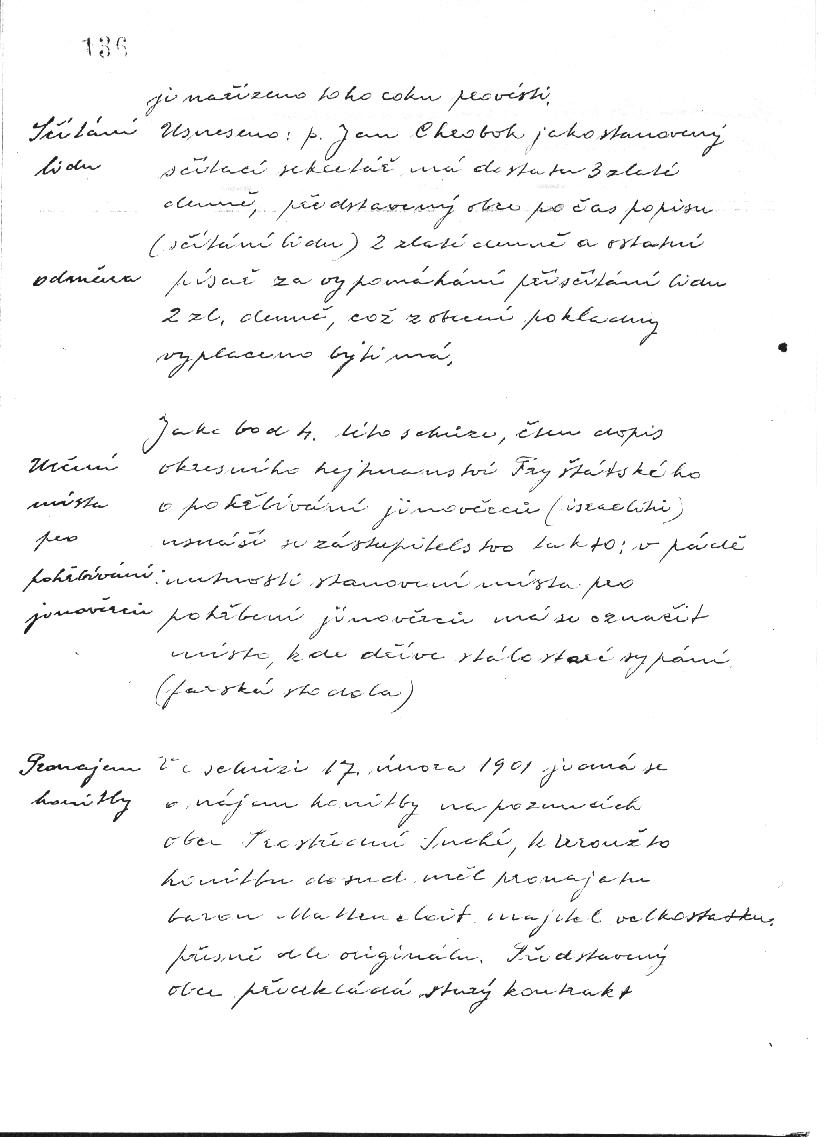 136
ji nařízeno toho roku provésti.
Sčítání lidu
Usneseno: p. Jan Chroboh jako stanovený
sčítací sekretář má dostati 3 zlaté
denně, představený obce po čas popisu
(sčítání lidu) 2 zlaté denně a ostatní
odměna
písař za vypomáhání při sčítání lidu
2 zl. denně, což z obecní pokladny
vyplaceno býti má.
Jako bod 4. této schůze, čten dopis
Určení
okresního hejtmanství Fryštátského
místa
o pohřbívání jinověrců (israeliti)
pro
usnáší se zástupitelstvo takto: v pádě
pohřbívání
nutnosti stanovení místa pro
jinověrců
pohřbení jinověrců má se označit
místo, kde dříve stálo staré sypání
(farská stodola)
Pronajem
Ve schůzi 17. února 1901 jedná se
honitby
o nájem honitby na pozemcích
obce Prostřední Suché, kteroužto
honitbu dosud měl pronajatu
baron Mattencloit majitel velkostatku.
přesně dle originálu. Představený
obce předkládá starý kontrakt